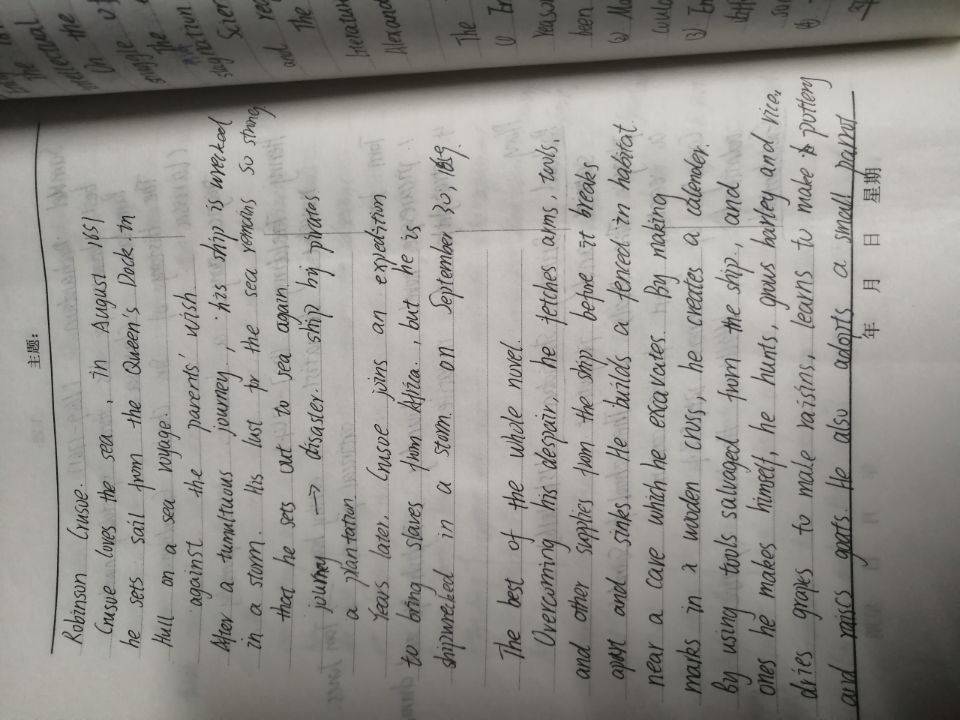 主题：
Robinson Crusoe.
Crusoe loves the sea, in August 1651
he sets sail from the Queen's Dock in
Hull on a sea voyage.
against the parents' wish
After a tumultuous journey, his ship is wrecked
in a storm. his lust for the sea remains so strong
that he sets out to sea again
journey → disaster. ship by pirates
a plantation
Years later. Crusoe joins an expedition
to bring slaves from Africa., but he is
shipwrecked in a storm on September 30, 1659.
The best of the whole novel.
Overcoming his despair, he fetches arms, tools,
and other supplies from the ship before it breaks
apart and sinks. He builds a fenced in habitat
near a cave which he excavates. By making
marks in a wooden cross, he creates a calendar.
by using tools salvaged from the ship, and
ones he makes himself, he hunts, grows barley and rice,
dries grapes to make raisins, learns to make pottery
and raises goats. He also adopts a small parrot
年 月 日 星期
The
Alexand
Literature
and
The
Scien
the
On
intellectual
been